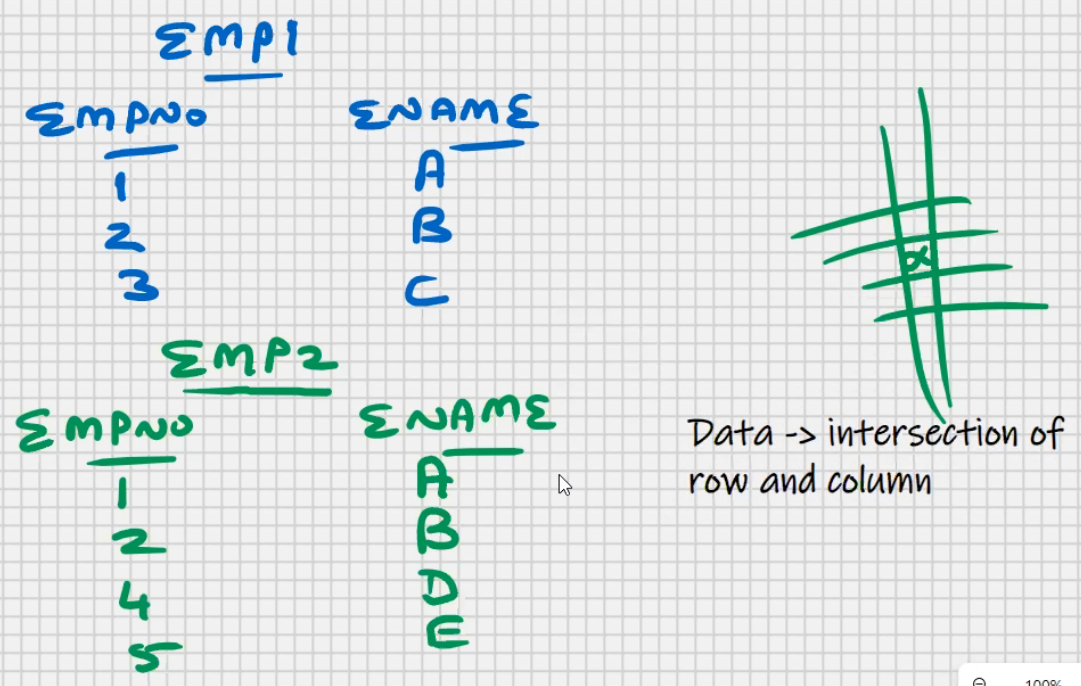 EMP1
EMPNO ENAME
1 A
2 B
3 C
EMP2
EMPNO ENAME
1 A
2 B
4 D
5 E
x
Data -> intersection of
row and column
100%